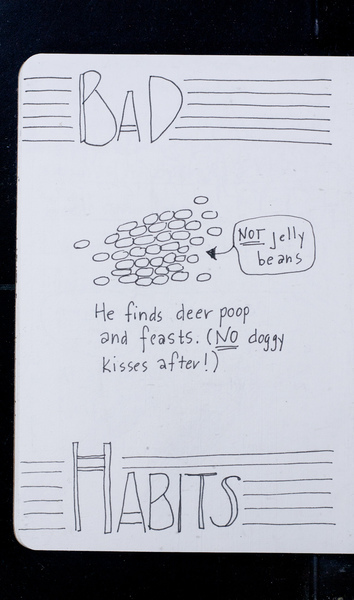 BAD
NOT jelly
beans
He finds deer poop
and feasts. (NO doggy
kisses after!)
HABITS